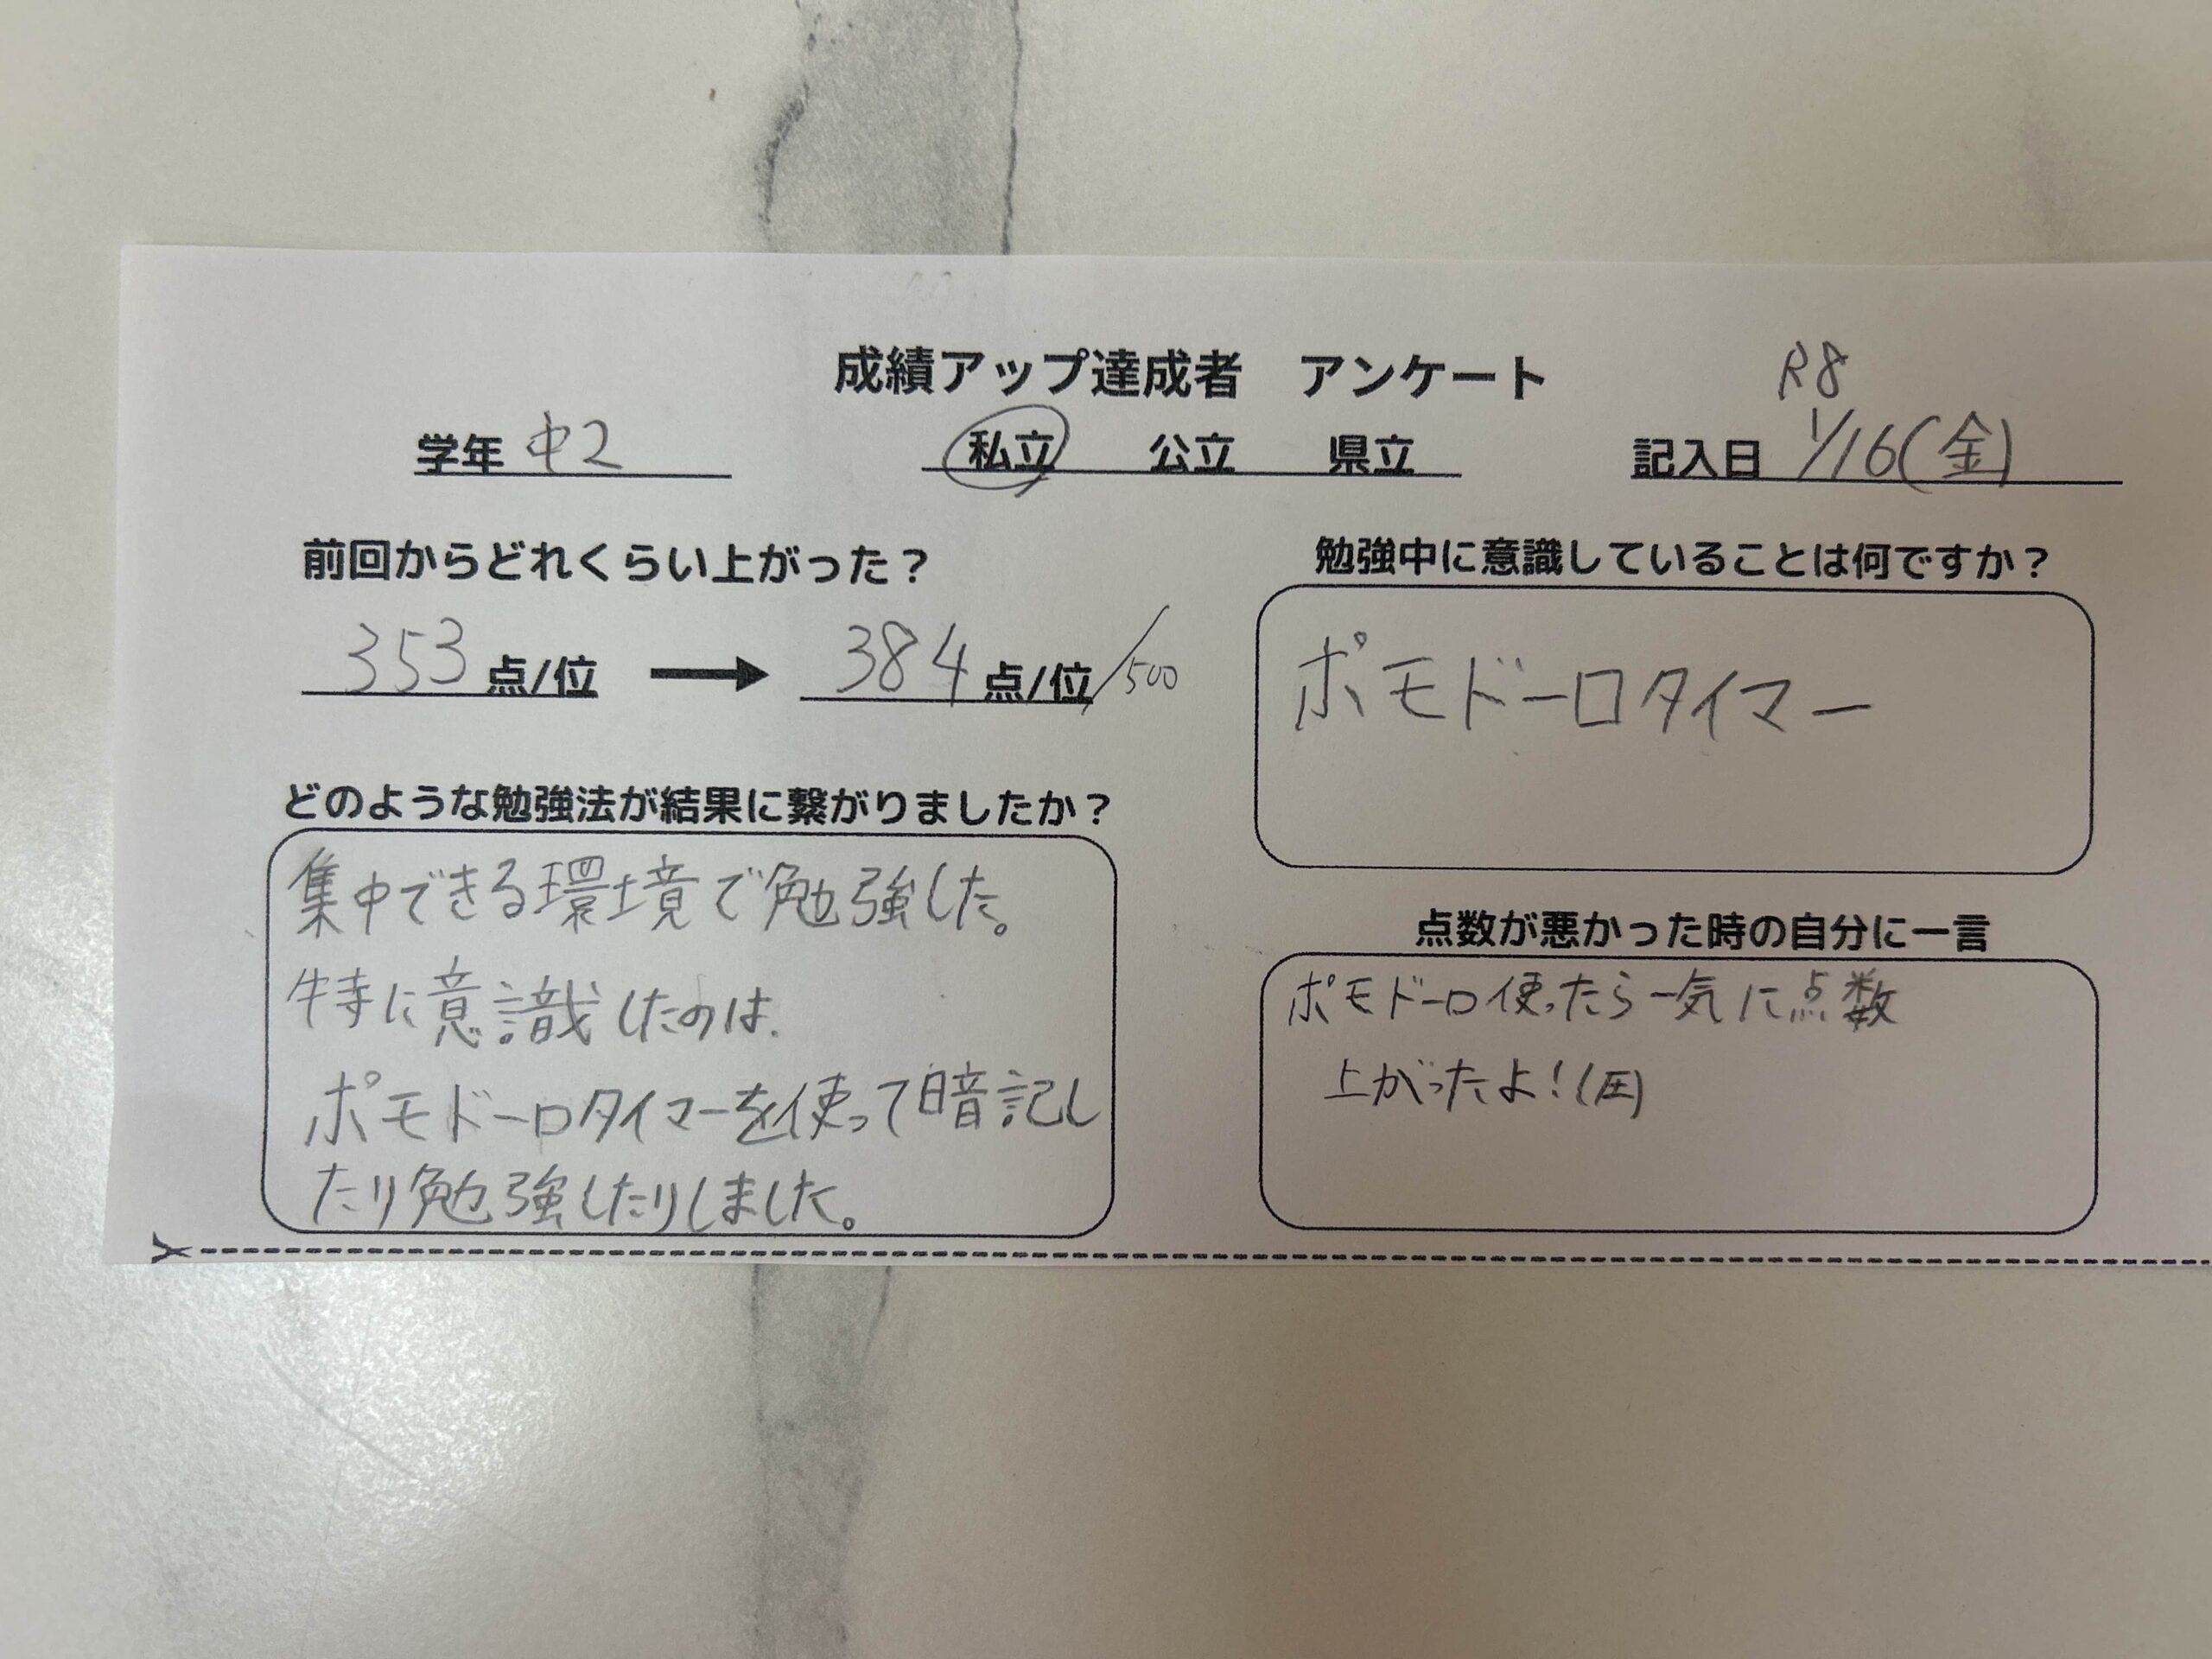 成績アップ達成者 アンケート
R8
学年 中2
私立 公立 県立
記入日 1/16(金)
前回からどれくらい上がった?
353 点/位 → 384 点/位 /500
どのような勉強法が結果に繋がりましたか?
集中できる環境で勉強した。
特に意識したのは、
ポモドーロタイマーを使って暗記し
たり勉強したりしました。
勉強中に意識していることは何ですか?
ポモドーロタイマー
点数が悪かった時の自分に一言
ポモドーロ使ったら一気に点数
上がったよ!(圧)